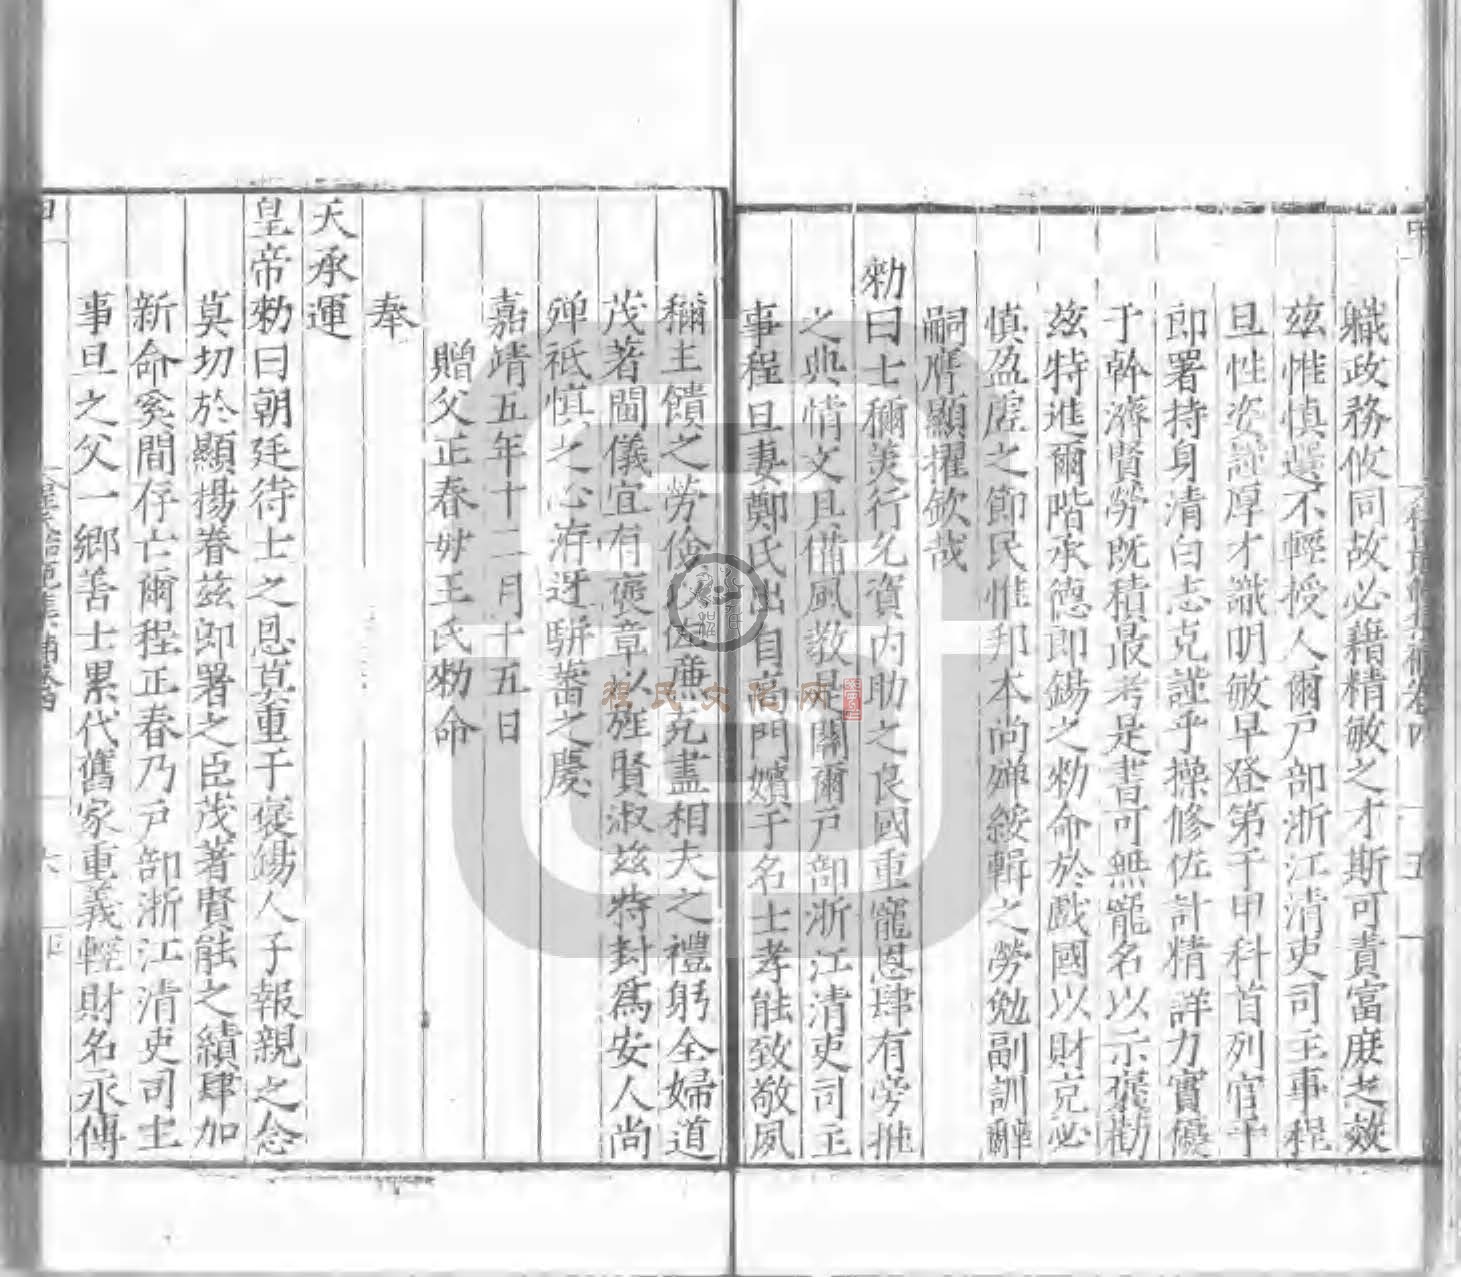 職政務攸同故必藉精敏之才斯可責富庶之效
茲惟慎選不輕授人爾戶部浙江清吏司主事程
旦性姿謹厚才識明敏早登第于甲科首列官于
郎署持身清白志克謹乎操修佐計精詳力實優
于幹濟賢勞既積最考是書可無寵名以示褒勸
茲特進爾階承德郎錫之勑命於戲國以財克必
慎盈虛之節民惟邦本尚殫綏輯之勞勉副訓辭
嗣膺顯擢欽哉
勑曰士稱美行允資內助之良國重寵恩肆有旁推
之典情文具備風教是關爾戶部浙江清吏司主
事程旦妻鄭氏出自高門嬪于名士孝能致敬夙
稱主饋之勞儉以佐亷克盡相夫之禮躬全婦道
茂著閫儀宜有褒章以旌賢淑茲特封爲安人尚
殫祗慎之心洊迓駢蕃之慶
嘉靖五年十二月十五日
贈父正春母王氏勑命
奉
天承運
皇帝勑曰朝廷待士之恩莫重于褒錫人子報親之念
莫切於顯揚眷茲郎署之臣茂著賢能之績肆加
新命奚間存亡爾程正春乃戶部浙江清吏司主
事旦之父一鄉善士累代舊家重義輕財名永傳
程氏文化网